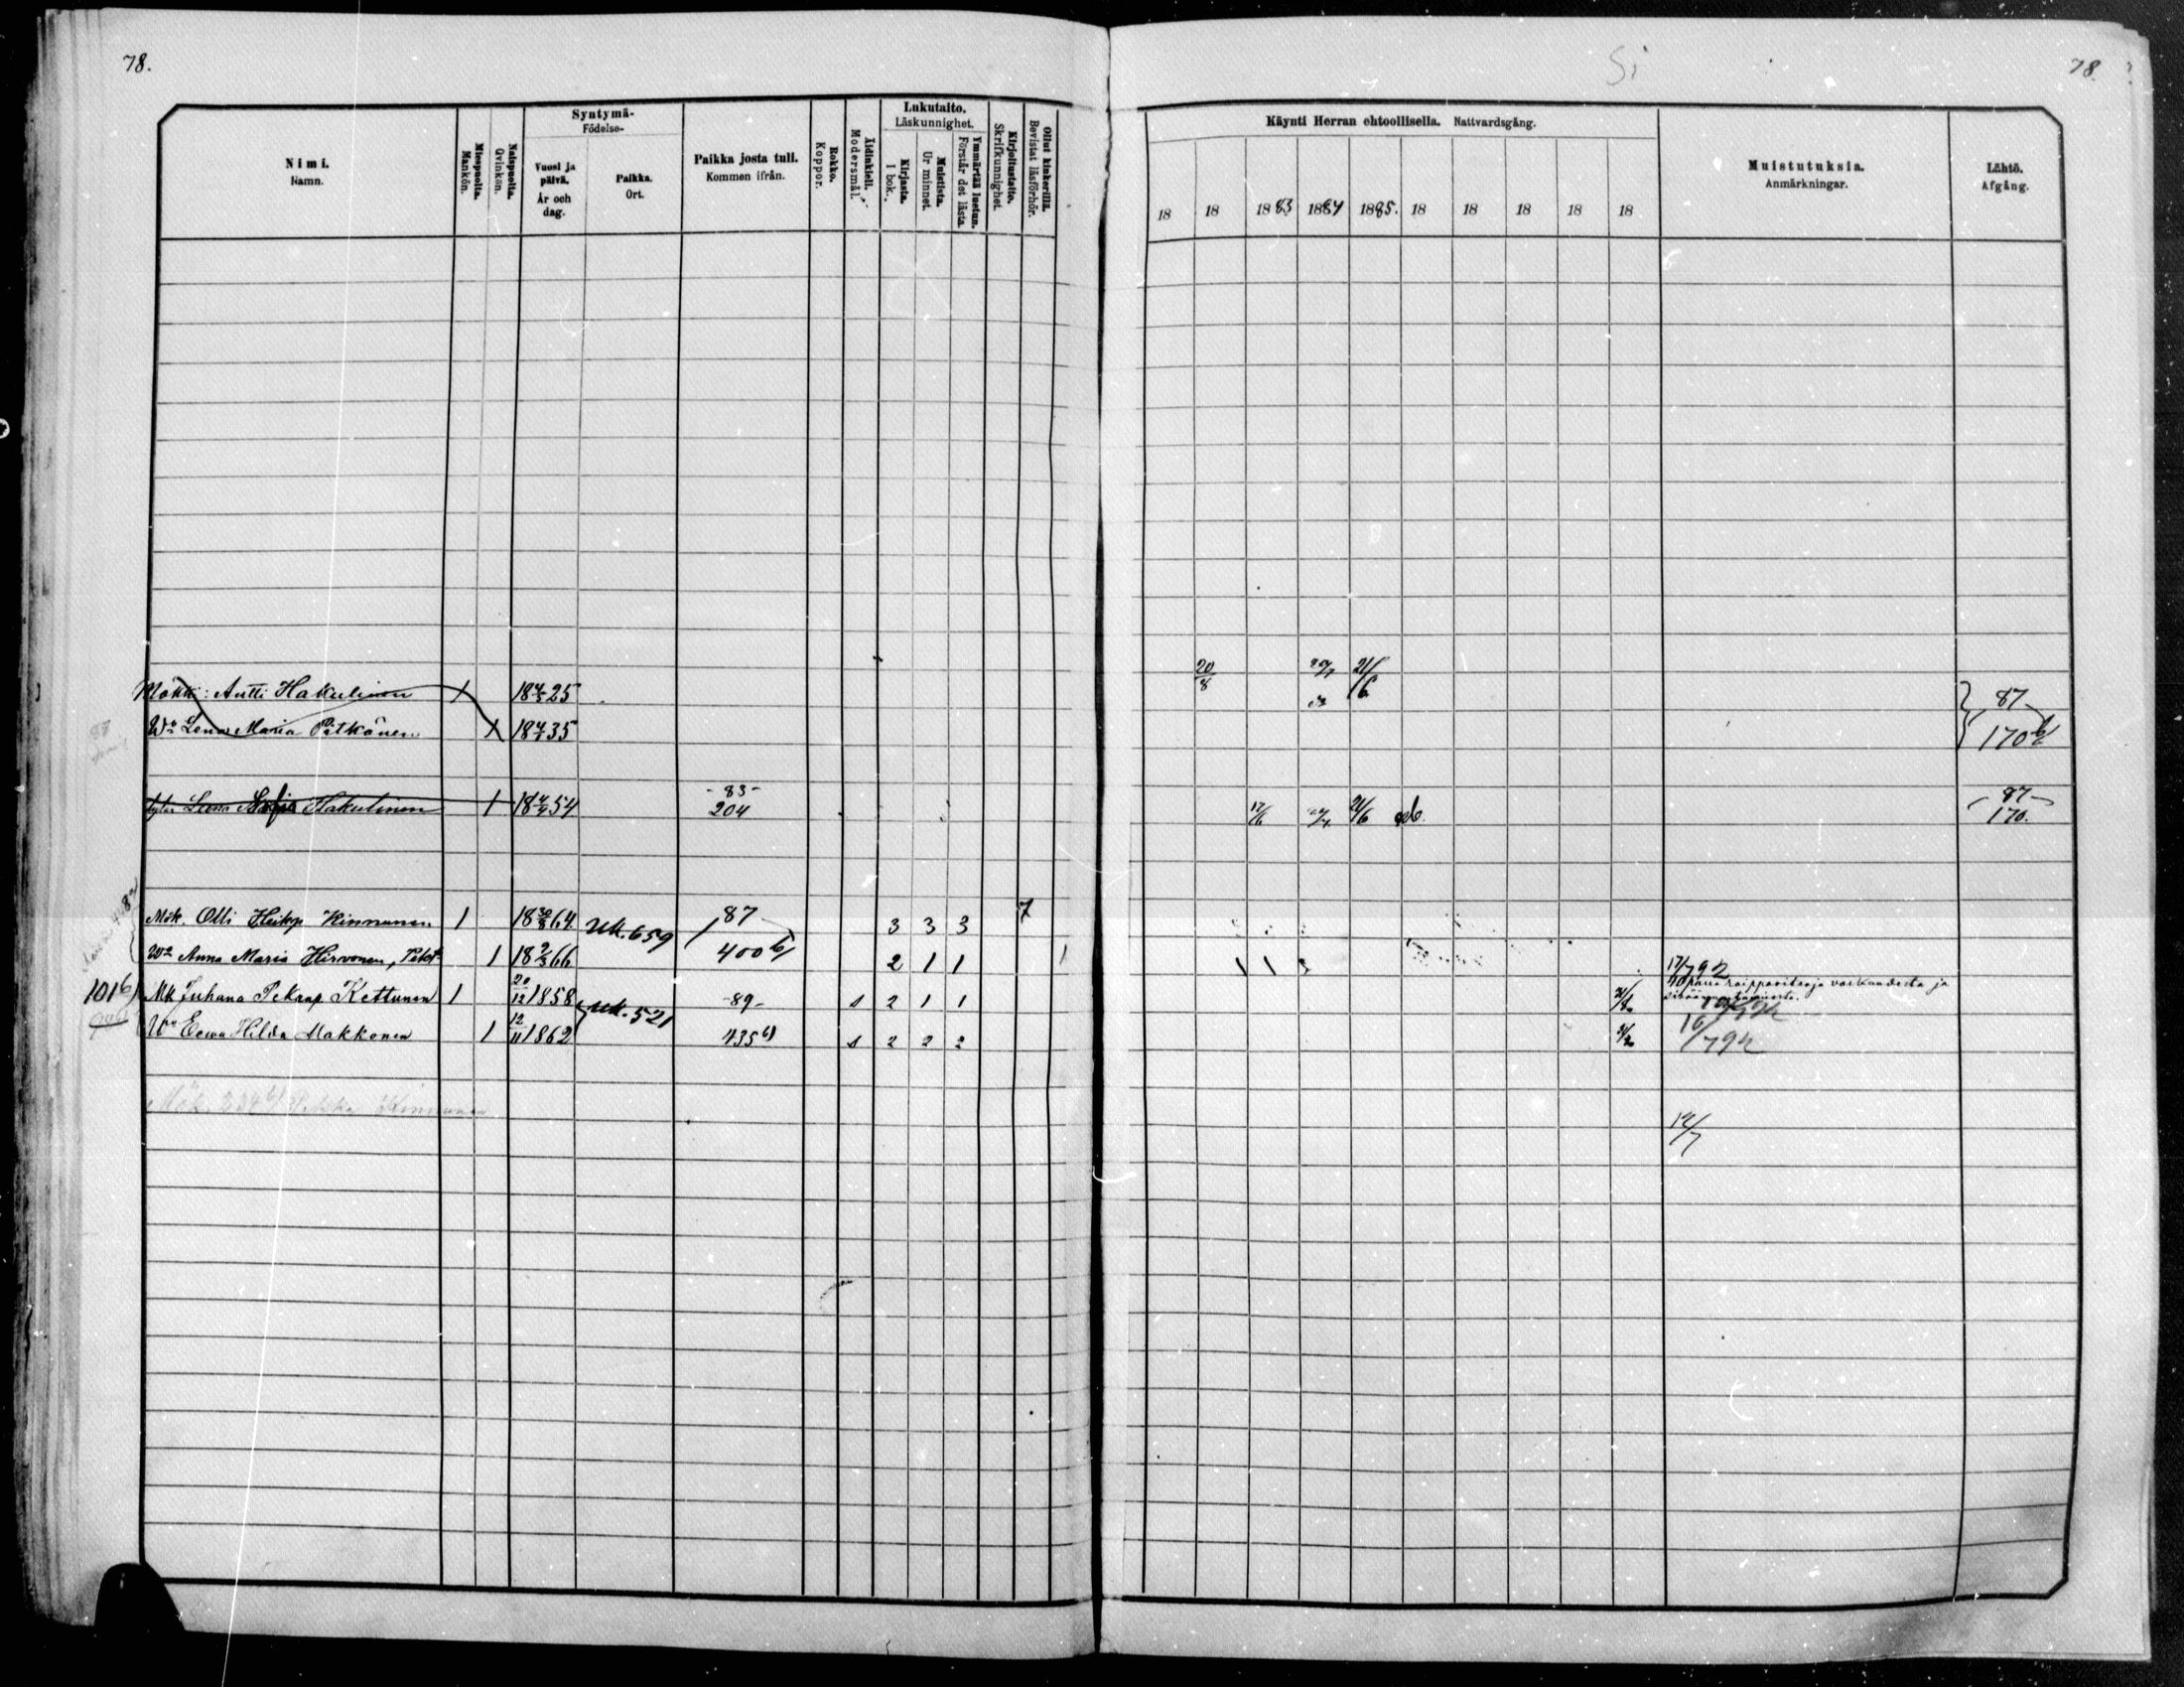 78.
Si
78.
Nimi.
Namn.
Miespuolta.
Mankön.
Naispuolta.
Qvinkön.
Syntymä-
Födelse-
Vuosi ja
päivä.
År och
dag.
Paikka.
Ort.
Paikka josta tuli.
Kommen ifrån.
Rokko.
Koppor.
Äidinkieli.
Modersmål.
Lukutaito.
Läskunnighet.
Kirjasta.
I bok.
Muistista.
Ur minnet.
Ymmärtää luetun.
Förstår det lästa
Kirjoitustaito.
Skrifkunnighet.
Ollut kinkerillä.
Bevistat läsförhör.
Käynti Herran ehtoollisella. Nattvardsgång.
18 18 1883 1884 1885. 18 18 18 18 18
Muistutuksia.
Anmärkningar.
Lähtö.
Afgång.
Mökk: Antti Hakulinen 1 18 4/5 25 20/8 21/6 87
Wo Lena Maria Pitkänen 1 18 4/1 35 170 b/
-83- -87-
Lena Sofia Hakulinen 1 18 54 204 17/6 21/6 170.
Mök. Olli Heikp Kinnunen 1 18 30/8 64 Uk. 659 87 3 3 3 7
Wo Anna Maria Hirvonen, 1 18 2/3 66 400 b/ 2 1 1 1 17/7 92
101 b) Mk Juhana Pekanp Kettunen 1 20/12 1858 Uk. 521 -89- s 2 1 1
Wo Eewa Hilda Makkonen 1 12/11 1862 435 b) s 2 2 2 16/7 92
Mök. 234 b) Pekka Kinnunen
12/7